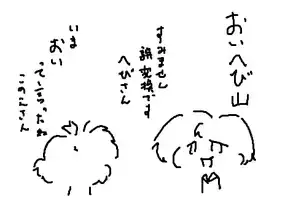 おいへび山
すみません
誤変換です
へびさん
いま
おい
って言ったね
このえさん